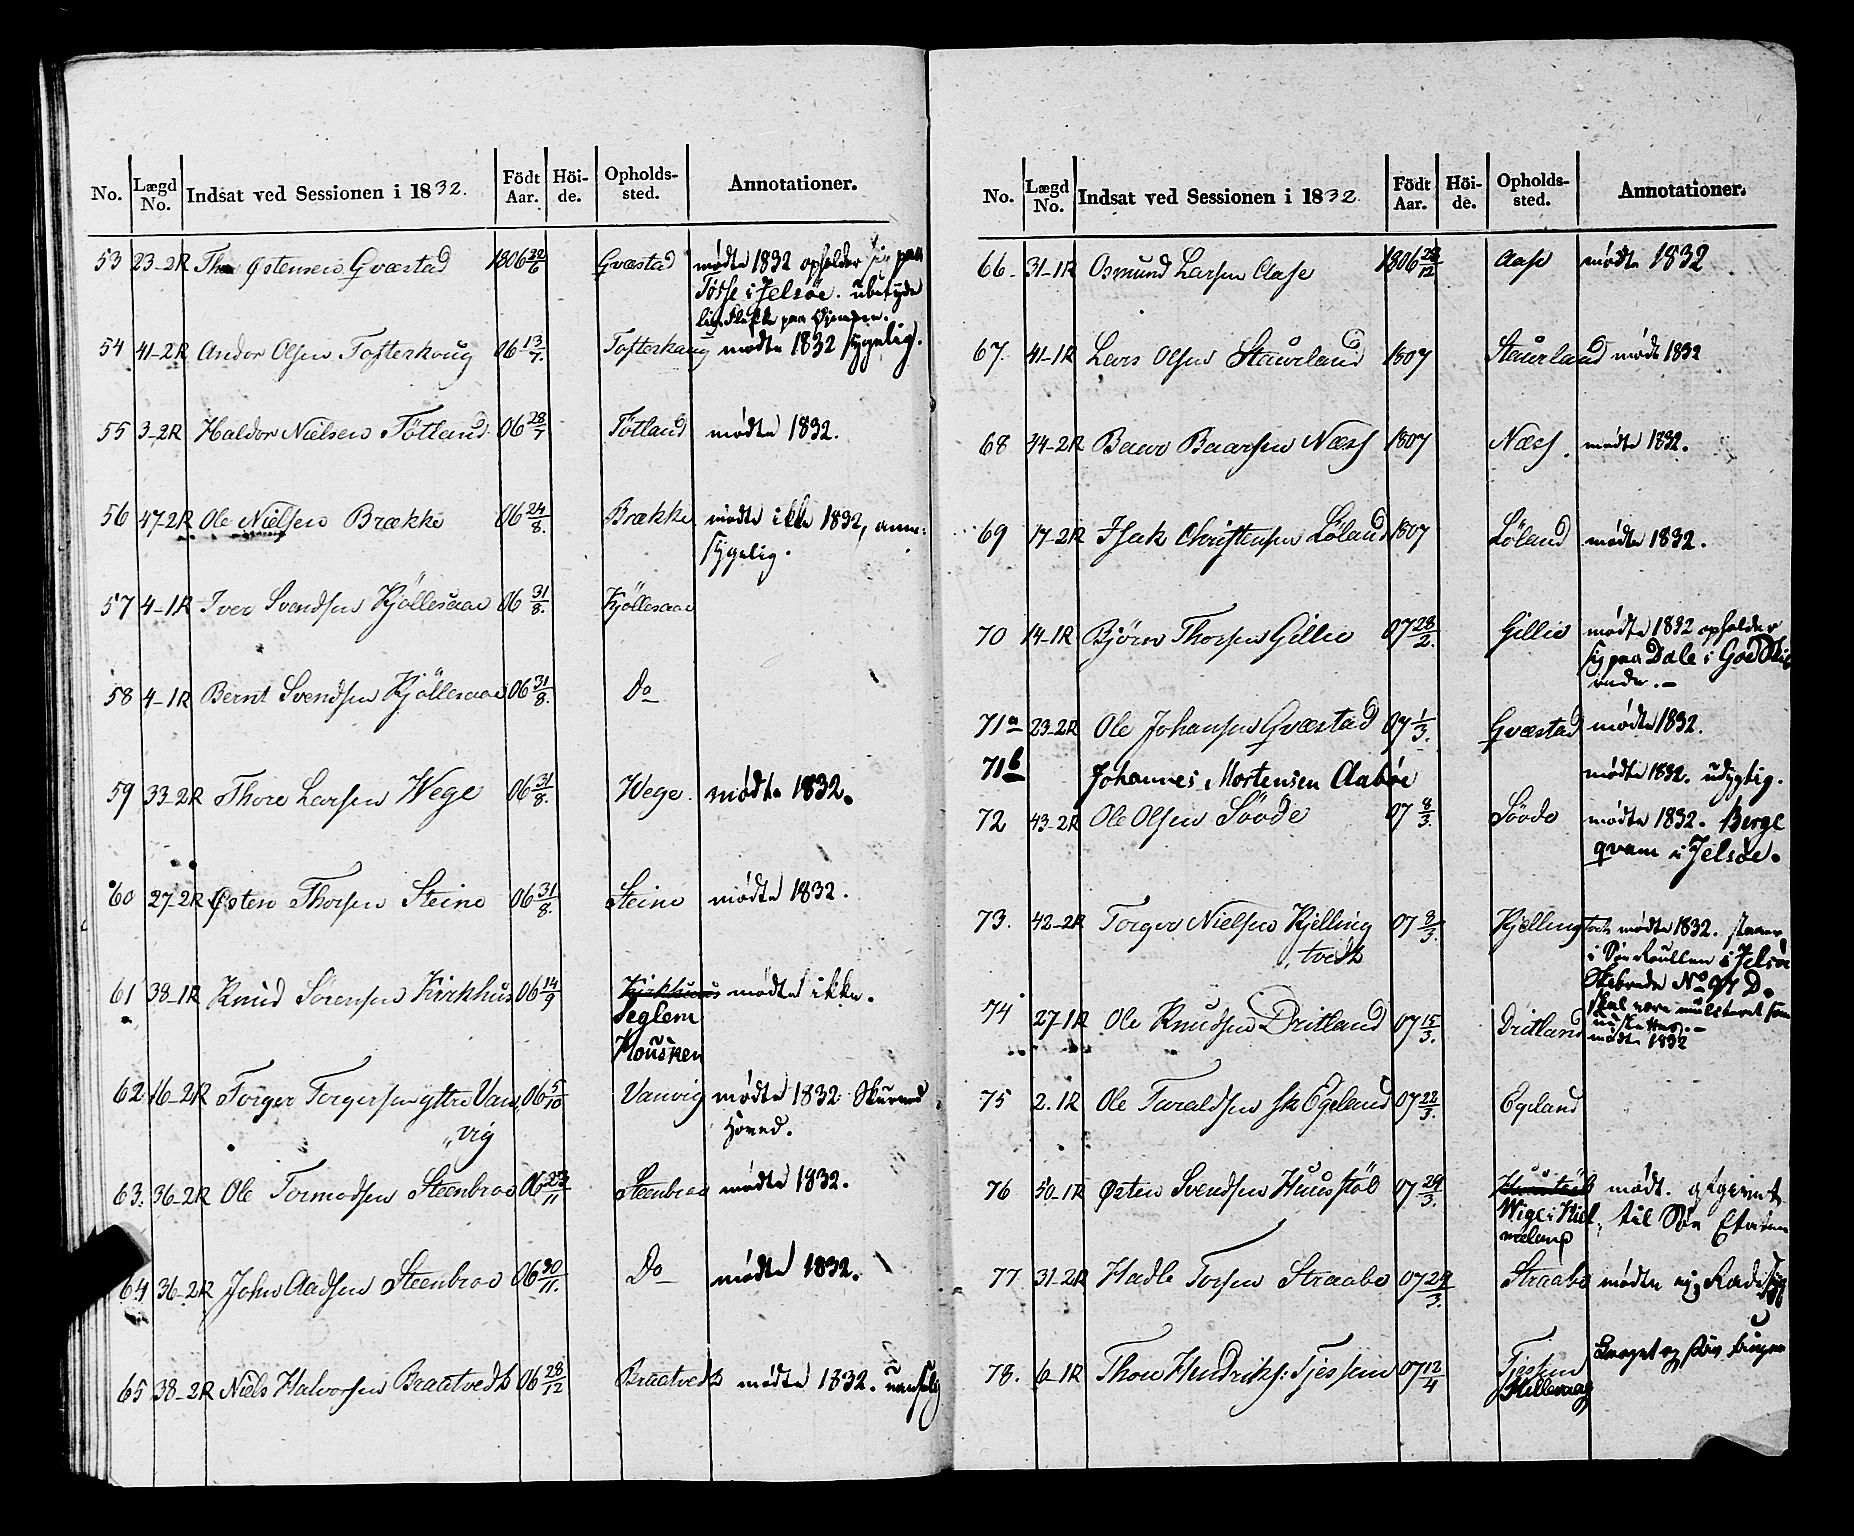 No. Lægd No. Indsat ved Sessionen i 1832. Födt Aar. Höide. Opholdssted. Annotationer.
53 23-2R Østensen Qvæstad 1806 22/6 Qvæstad mødte 1832 opholder sig paa
Tøsse i Jelsöe. ubetyde
54 41-2R Andor Olsen Tofterhoug 06 13/7. Tofterhaug mødte 1832 sygelig.
55 3-2R Haldor Nielsen Tötland 06 28/7 Tötland mødte 1832.
56 47-2R Ole Nielsen Brække 06 24/8. Brække mødte ikke 1832, anm:
sygelig.
57 4-1R Iver Svendsen Kjöllesaae 06 31/8. Kjöllesaae
58 4-1R Bernt Svendsen Kjöllesaae 06 31/8. Do
59 33-2R Thore Larsen Wege 06 31/8. Wege. mødte 1832.
60 27-2R Østen Thorsen Steine 06 31/8. Steine mødte 1832.
61 38-1R Knud Sörensen Kirkhus 06 14/9 Kirkhuus mødte ikke.
Seglem
Housken
62 16-2R Torger Torgersen ytre Van 06 5/10 Vanvig mødte 1832 Skurved
„vig Hoved.
63. 36-2R Ole Tormodsen Steenbroe 06 23/11 Steenbroe mødte 1832.
64 36-2R John Aadsen Steenbroe 06 30/11. Do mødte 1832.
65 38-2R Niels Halvorsen Braatvedt 06 28/12 Braatvedt mødte 1832.
No. Lægd No. Indsat ved Sessionen i 1832. Födt Aar. Höide. Opholdssted. Annotationer.
66 31-1R Osmund Larsen Aase 1806 28/12 Aase mødte 1832
67. 41-1R Lars Olsen Staurland 1807 Staurland mødt 1832
68 44-2R Baar Baarsen Næss 1807 Næss. mødte 1832.
69 17-2R Isak Christensen Löland 1807 Löland mødte 1832.
70 14-1R Björn Thorsen Gillie 07 28/2. Gillie mødte 1832 opholder
sig paa Dale i
71a 23-2R Ole Johansen Qvæstad 07 1/3. Qvæstad mødte 1832.
71b Johannes Mortensen Aaböe mødte 1832. udygtig.
72 43-2R Ole Olsen Sövde 07 8/3. Sövde mødte 1832. Berge
qvam i Jelsöe.
73. 42-2R Torger Nielsen Kjelling 07 8/3. Kjellingtvedt mødte 1832. staaer
tvedt i Söe Roullen i Jelsöe
74 27-1R Ole Knudsen Dritland 07 15/3. Dritland
mødte 1832
75 2.1R Ole Taraldsen Egeland 07 22/3. Egeland
76 50-1R Østen Svendsen Huusstöl 07 29/3. Huustöl mødt.
til Söe Etaten
77 31-2R Hadle Torsen Straabe 07 29/3. Straabe mødte ej
78. 6-1R Thore Hendriks: Tjessem 07 12/4 Tjessem
Hillevaag